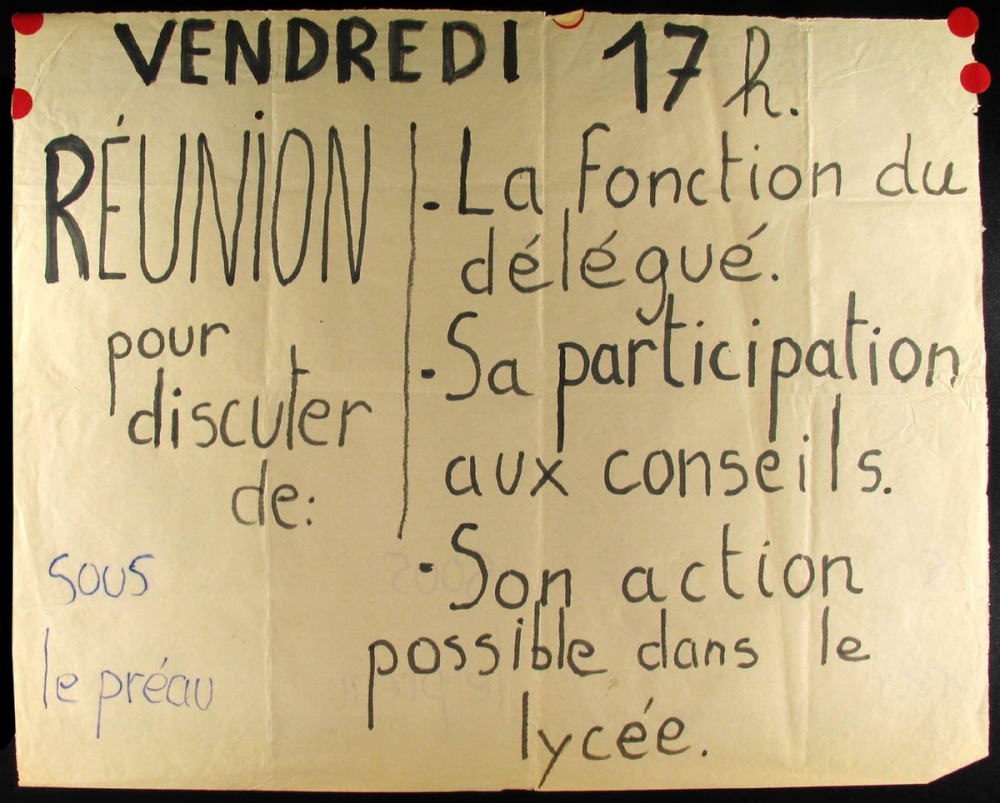 VENDREDI 17 h.
RÉUNION
pour
discuter
de:
sous
le préau
. La fonction du
délégué.
. Sa participation
aux conseils.
. Son action
possible dans le
lycée.